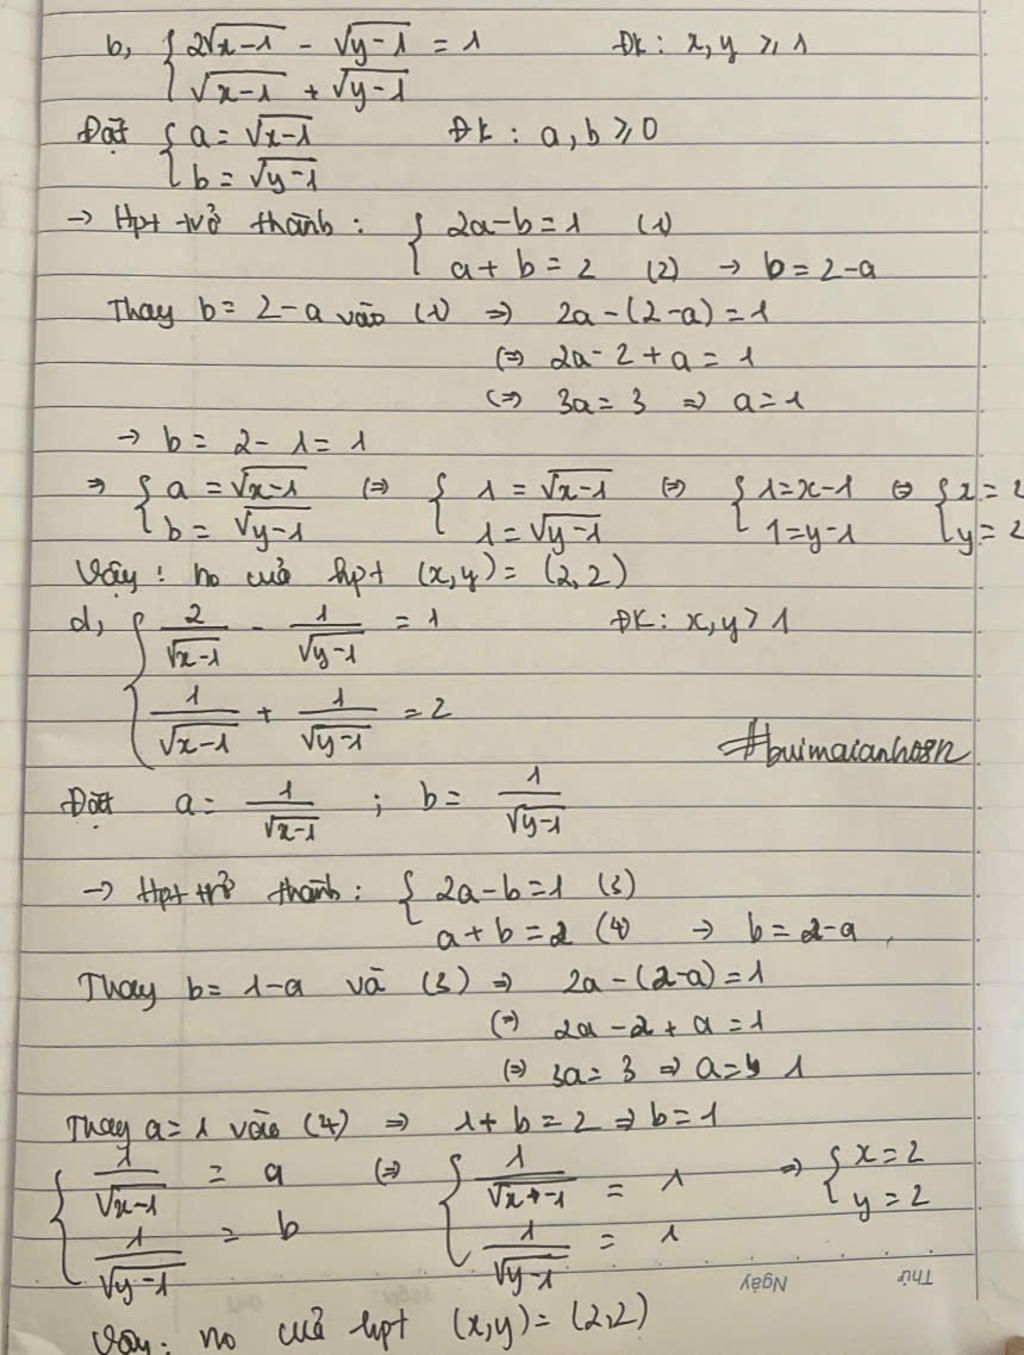 b, { 2√(x-1) - √(y-1) = 1 ĐK: x, y ≥ 1
√(x-1) + √(y-1)
Đặt { a = √(x-1) ĐK: a, b ≥ 0
b = √(y-1)
→ Hpt trở thành: { 2a-b=1 (1)
a + b = 2 (2) → b = 2-a
Thay b = 2-a vào (1) ⇒ 2a-(2-a)=1
⇔ 2a-2+a=1
⇔ 3a=3 ⇒ a=1
→ b = 2-1=1
⇒ { a = √(x-1) ⇔ { 1 = √(x-1) ⇔ { 1=x-1 ⇔ { x=2
b = √(y-1) 1 = √(y-1) 1=y-1 y=2
Vậy: no của hpt (x,y) = (2,2)
d, { 2/√(x-1) - 1/√(y-1) = 1 ĐK: x,y > 1
1/√(x-1) + 1/√(y-1) = 2
#buimaianh08n
Đặt a = 1/√(x-1) ; b = 1/√(y-1)
→ Hpt trở thành: { 2a-b=1 (3)
a+b=2 (4) → b=2-a
Thay b=1-a và (3) ⇒ 2a-(2-a)=1
⇔ 2a-2+a=1
⇔ 3a=3 ⇒ a= 1
Thay a=1 vào (4) ⇒ 1+b=2 ⇒ b=1
{ 1/√(x-1) = a ⇔ { 1/√(x-1) = 1 ⇒ { x=2
1/√(y-1) = b 1/√(y-1) = 1 y=2
Thứ Ngày
Vậy: no của hpt (x,y)=(2,2)